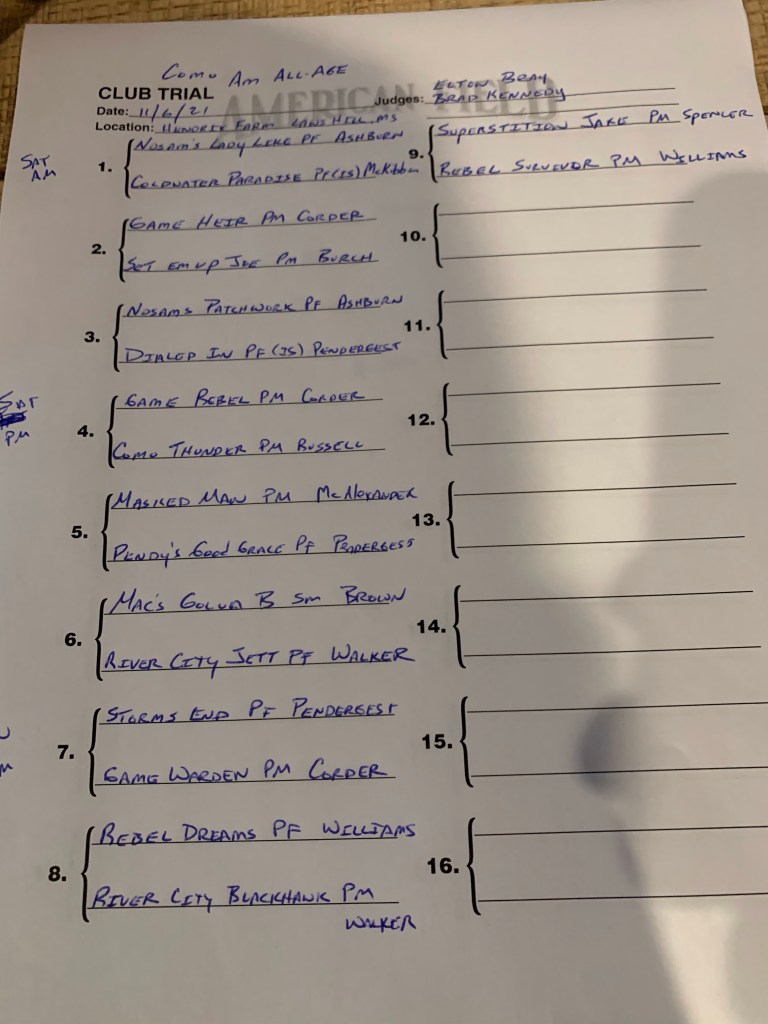 Como Am All-Age
AMERICAN FIELD
CLUB TRIAL
Judges: Elton Bray
Brad Kennedy
Date: 11/6/21
Location: Hunorie Farm Laws Hill, MS
SAT AM
1. Nosam's Lady Like PF Ashburn
Coldwater Paradise PF(IS) McKibben
2. Game Heir PM Corder
Set em up Joe PM Burch
3. Nosams Patchwork PF Ashburn
Dialed In PF (IS) Pendergest
SAT PM
4. Game Rebel PM Corder
Como Thunder PM Russell
5. Masked Man PM McAlexander
Pendy's Good Grace PF Pendergest
6. Mac's B SM Brown
River City Jett PF Walker
7. Storms End PF Pendergest
Game Warden PM Corder
8. Rebel Dreams PF Williams
River City Blackhawk PM
Walker
9. Superstition Jake PM Spencer
Rebel Survivor PM Williams
10.
11.
12.
13.
14.
15.
16.